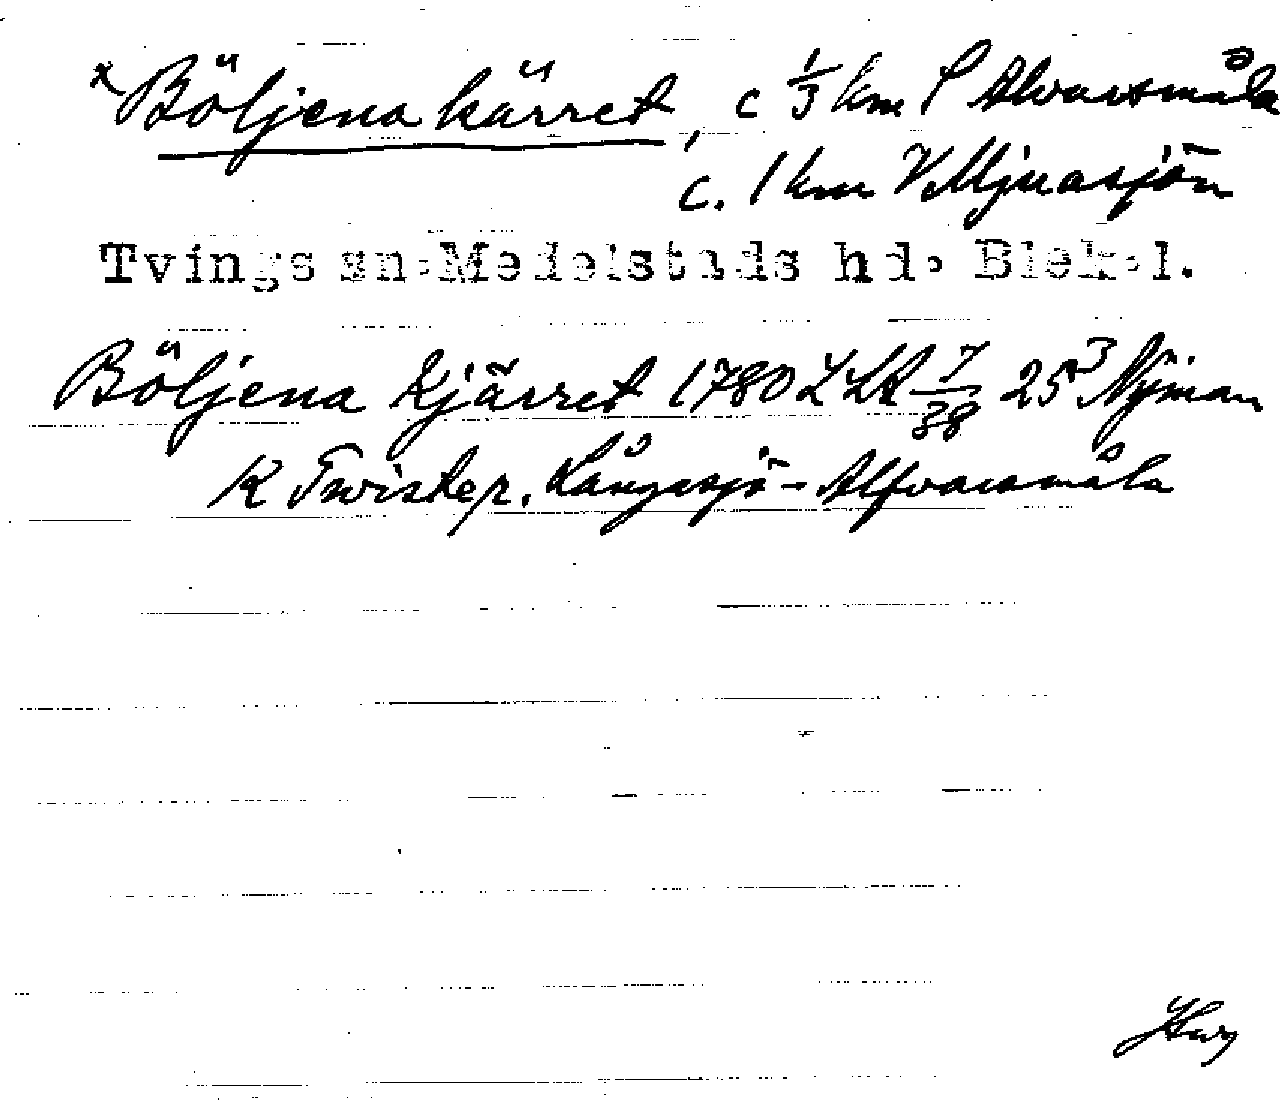 x Böljena kärret, c 1/3 km S Alvarsmåla
c. 1 km V. Mjuasjön
Tvings sn. Medelstads hd. Blek.l.
Böljena Kjärret 1780 Z LK 7/38 25³ Nyman
K Twister. Långasjö - Alfvarsmåla